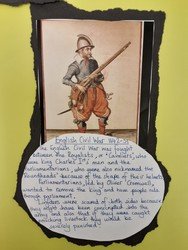 English Civil War 1642-51
The English Civil War was fought
between the Royalists, or 'Cavaliers', who
were King Charles I's men and the
Parliamentarians, who were also nicknamed the
'Roundheads' because of the shape of their helmets.
Parliamentarians, led by Oliver Cromwell,
wanted to remove the King and have people rule
through parliament.
were scared of both sides because
they might have been conscripted into the
army and also that if they were caught
practicing they would be
severely punished.